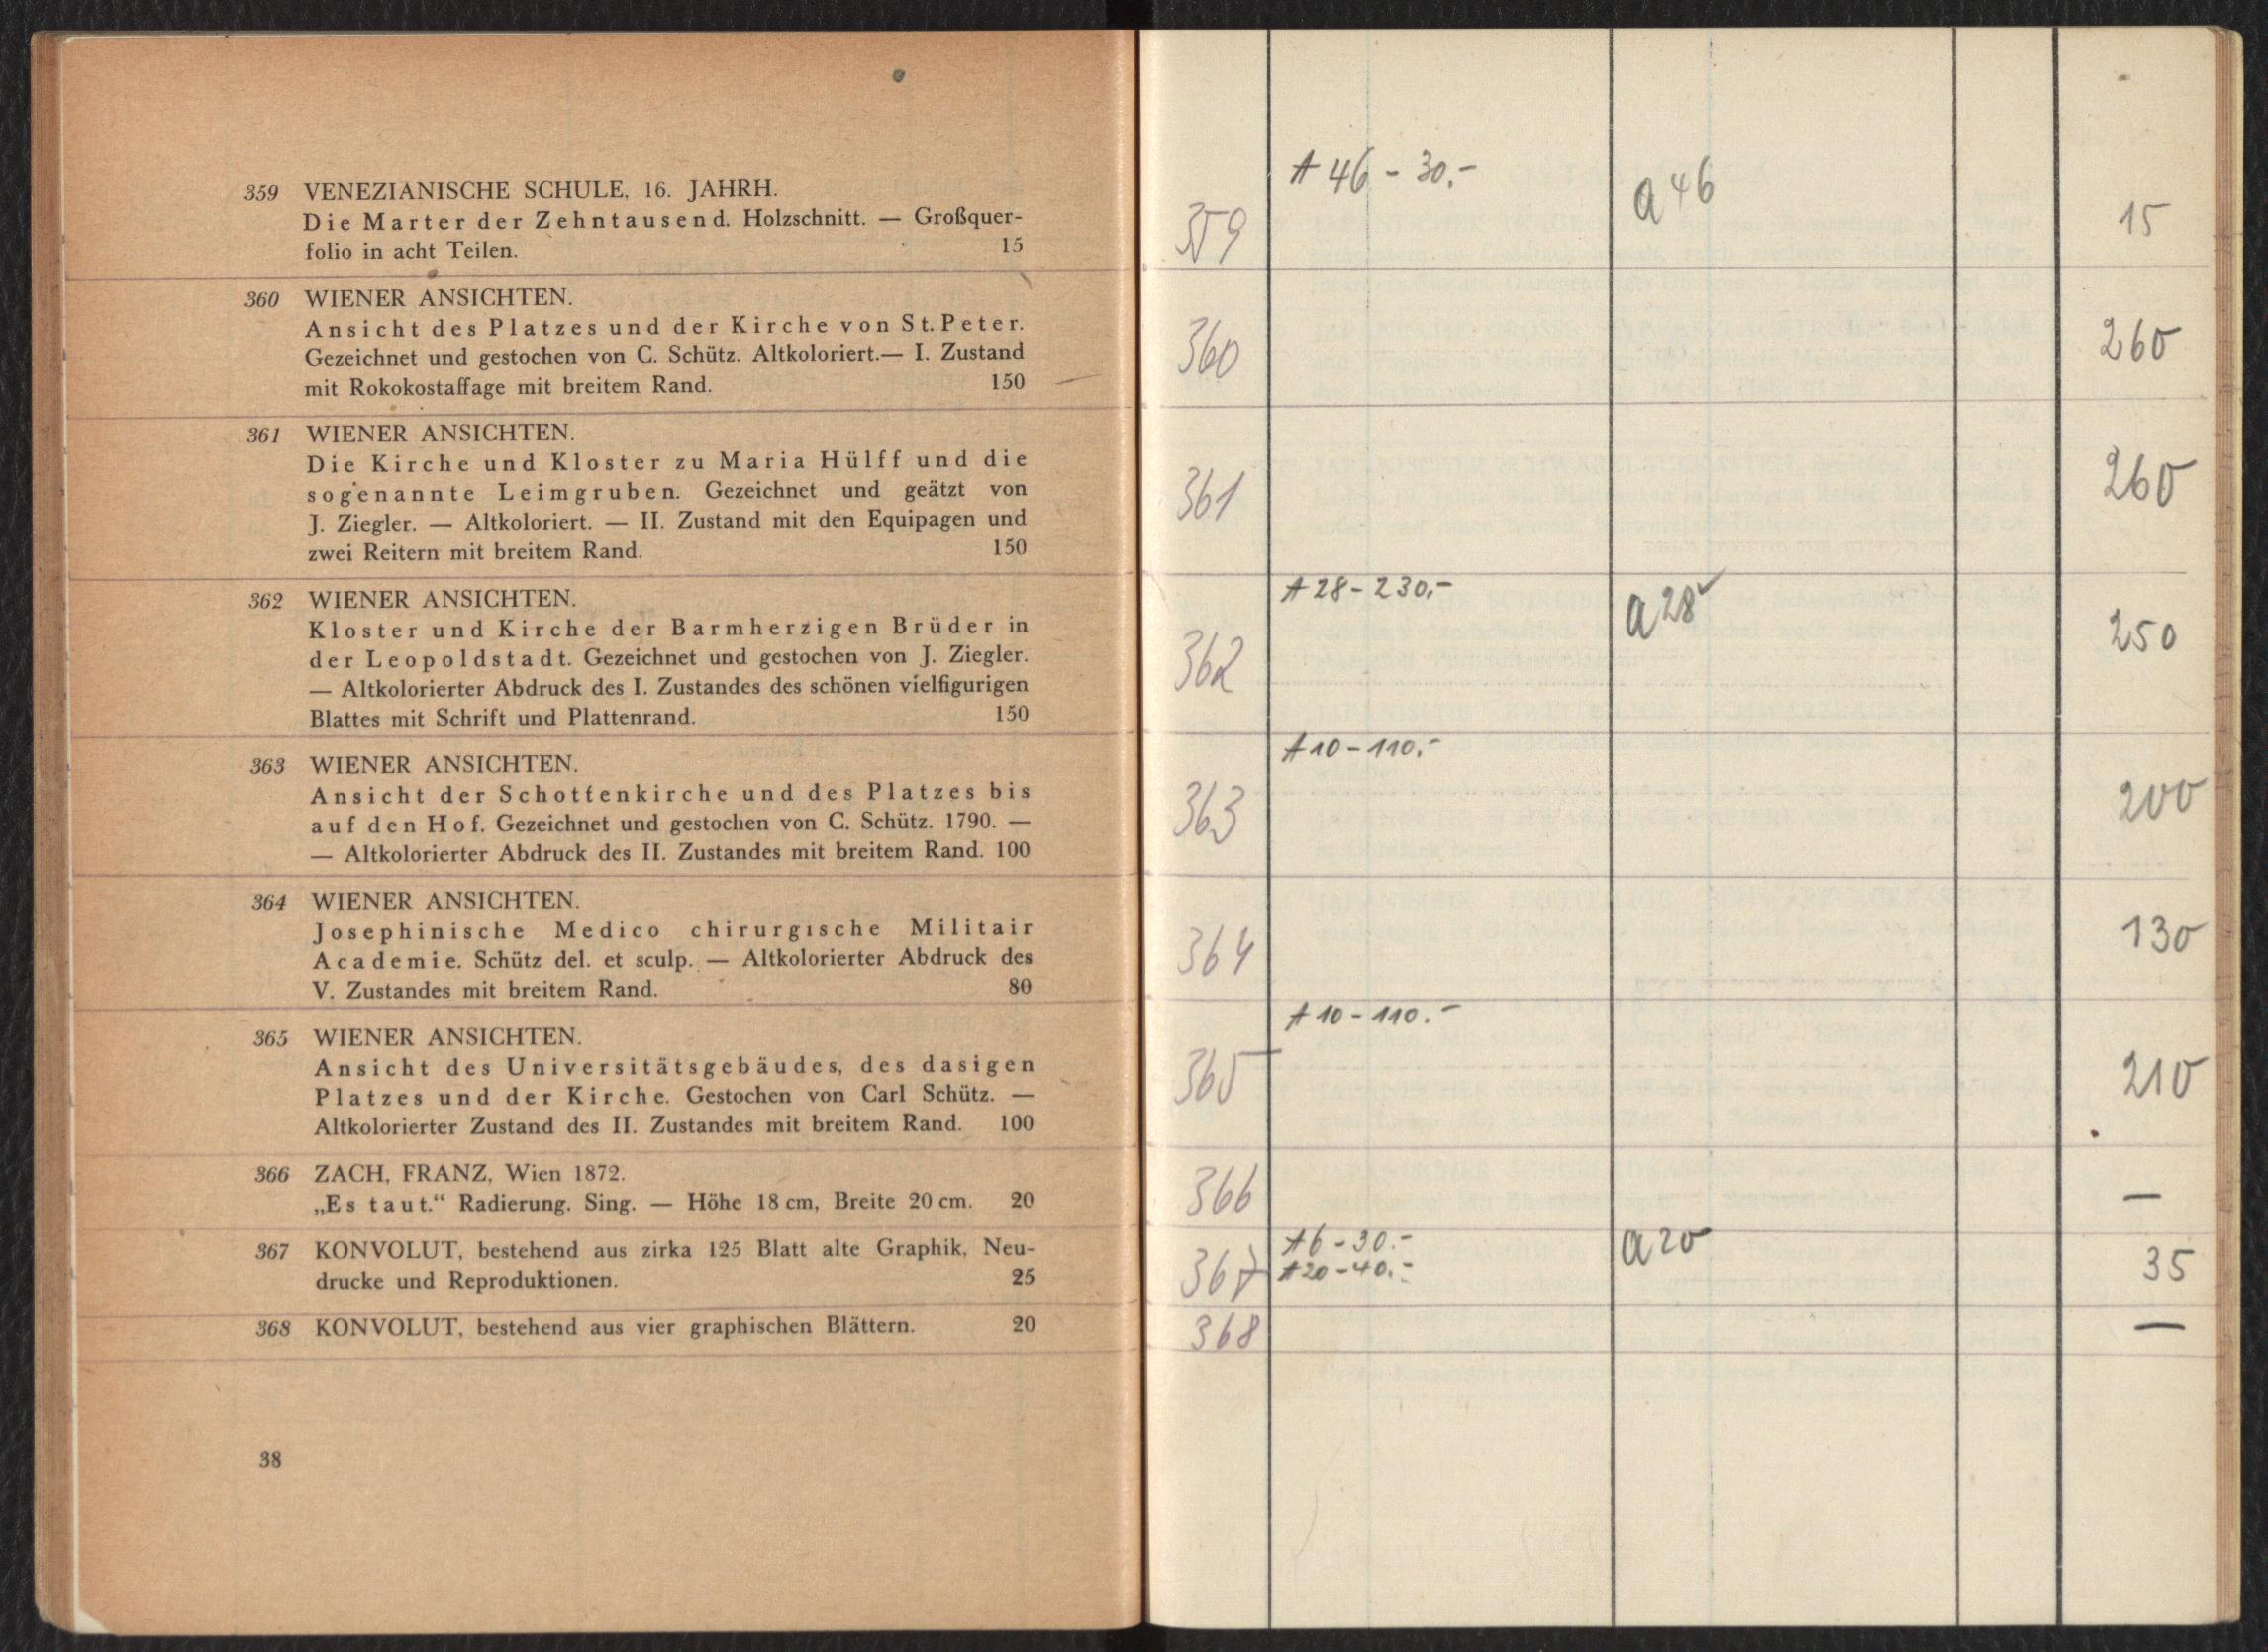 359 VENEZIANISCHE SCHULE, 16. JAHRH.
Die Marter der Zehntausend. Holzschnitt. — Großquer-
folio in acht Teilen. 15
360 WIENER ANSICHTEN.
Ansicht des Platzes und der Kirche von St. Peter.
Gezeichnet und gestochen von C. Schütz. Altkoloriert.— I. Zustand
mit Rokokostaffage mit breitem Rand. 150
361 WIENER ANSICHTEN.
Die Kirche und Kloster zu Maria Hülff und die
sogenannte Leimgruben. Gezeichnet und geätzt von
J. Ziegler. — Altkoloriert. — II. Zustand mit den Equipagen und
zwei Reitern mit breitem Rand. 150
362 WIENER ANSICHTEN.
Kloster und Kirche der Barmherzigen Brüder in
der Leopoldstadt. Gezeichnet und gestochen von J. Ziegler.
— Altkolorierter Abdruck des I. Zustandes des schönen vielfigurigen
Blattes mit Schrift und Plattenrand. 150
363 WIENER ANSICHTEN.
Ansicht der Schottenkirche und des Platzes bis
auf den Hof. Gezeichnet und gestochen von C. Schütz. 1790. —
— Altkolorierter Abdruck des II. Zustandes mit breitem Rand. 100
364 WIENER ANSICHTEN.
Josephinische Medico chirurgische Militair
Academie. Schütz del. et sculp. — Altkolorierter Abdruck des
V. Zustandes mit breitem Rand. 80
365 WIENER ANSICHTEN.
Ansicht des Universitätsgebäudes, des dasigen
Platzes und der Kirche. Gestochen von Carl Schütz. —
Altkolorierter Zustand des II. Zustandes mit breitem Rand. 100
366 ZACH, FRANZ, Wien 1872.
„Es taut.“ Radierung. Sing. — Höhe 18 cm, Breite 20 cm. 20
367 KONVOLUT, bestehend aus zirka 125 Blatt alte Graphik, Neu-
drucke und Reproduktionen. 25
368 KONVOLUT, bestehend aus vier graphischen Blättern. 20
38
359 A 46 - 30.- a 46 15
360 260
361 260
362 A 28 - 230.- a 28 250
363 A 10 - 110.- 200
364 130
365 A 10 - 110.- 210
366 —
367 A 6 - 30.- a 20 35
A 20 - 40.-
368 —